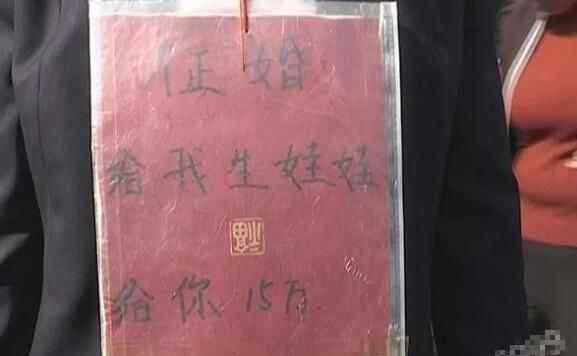 征婚
给我生娃娃
给你15万